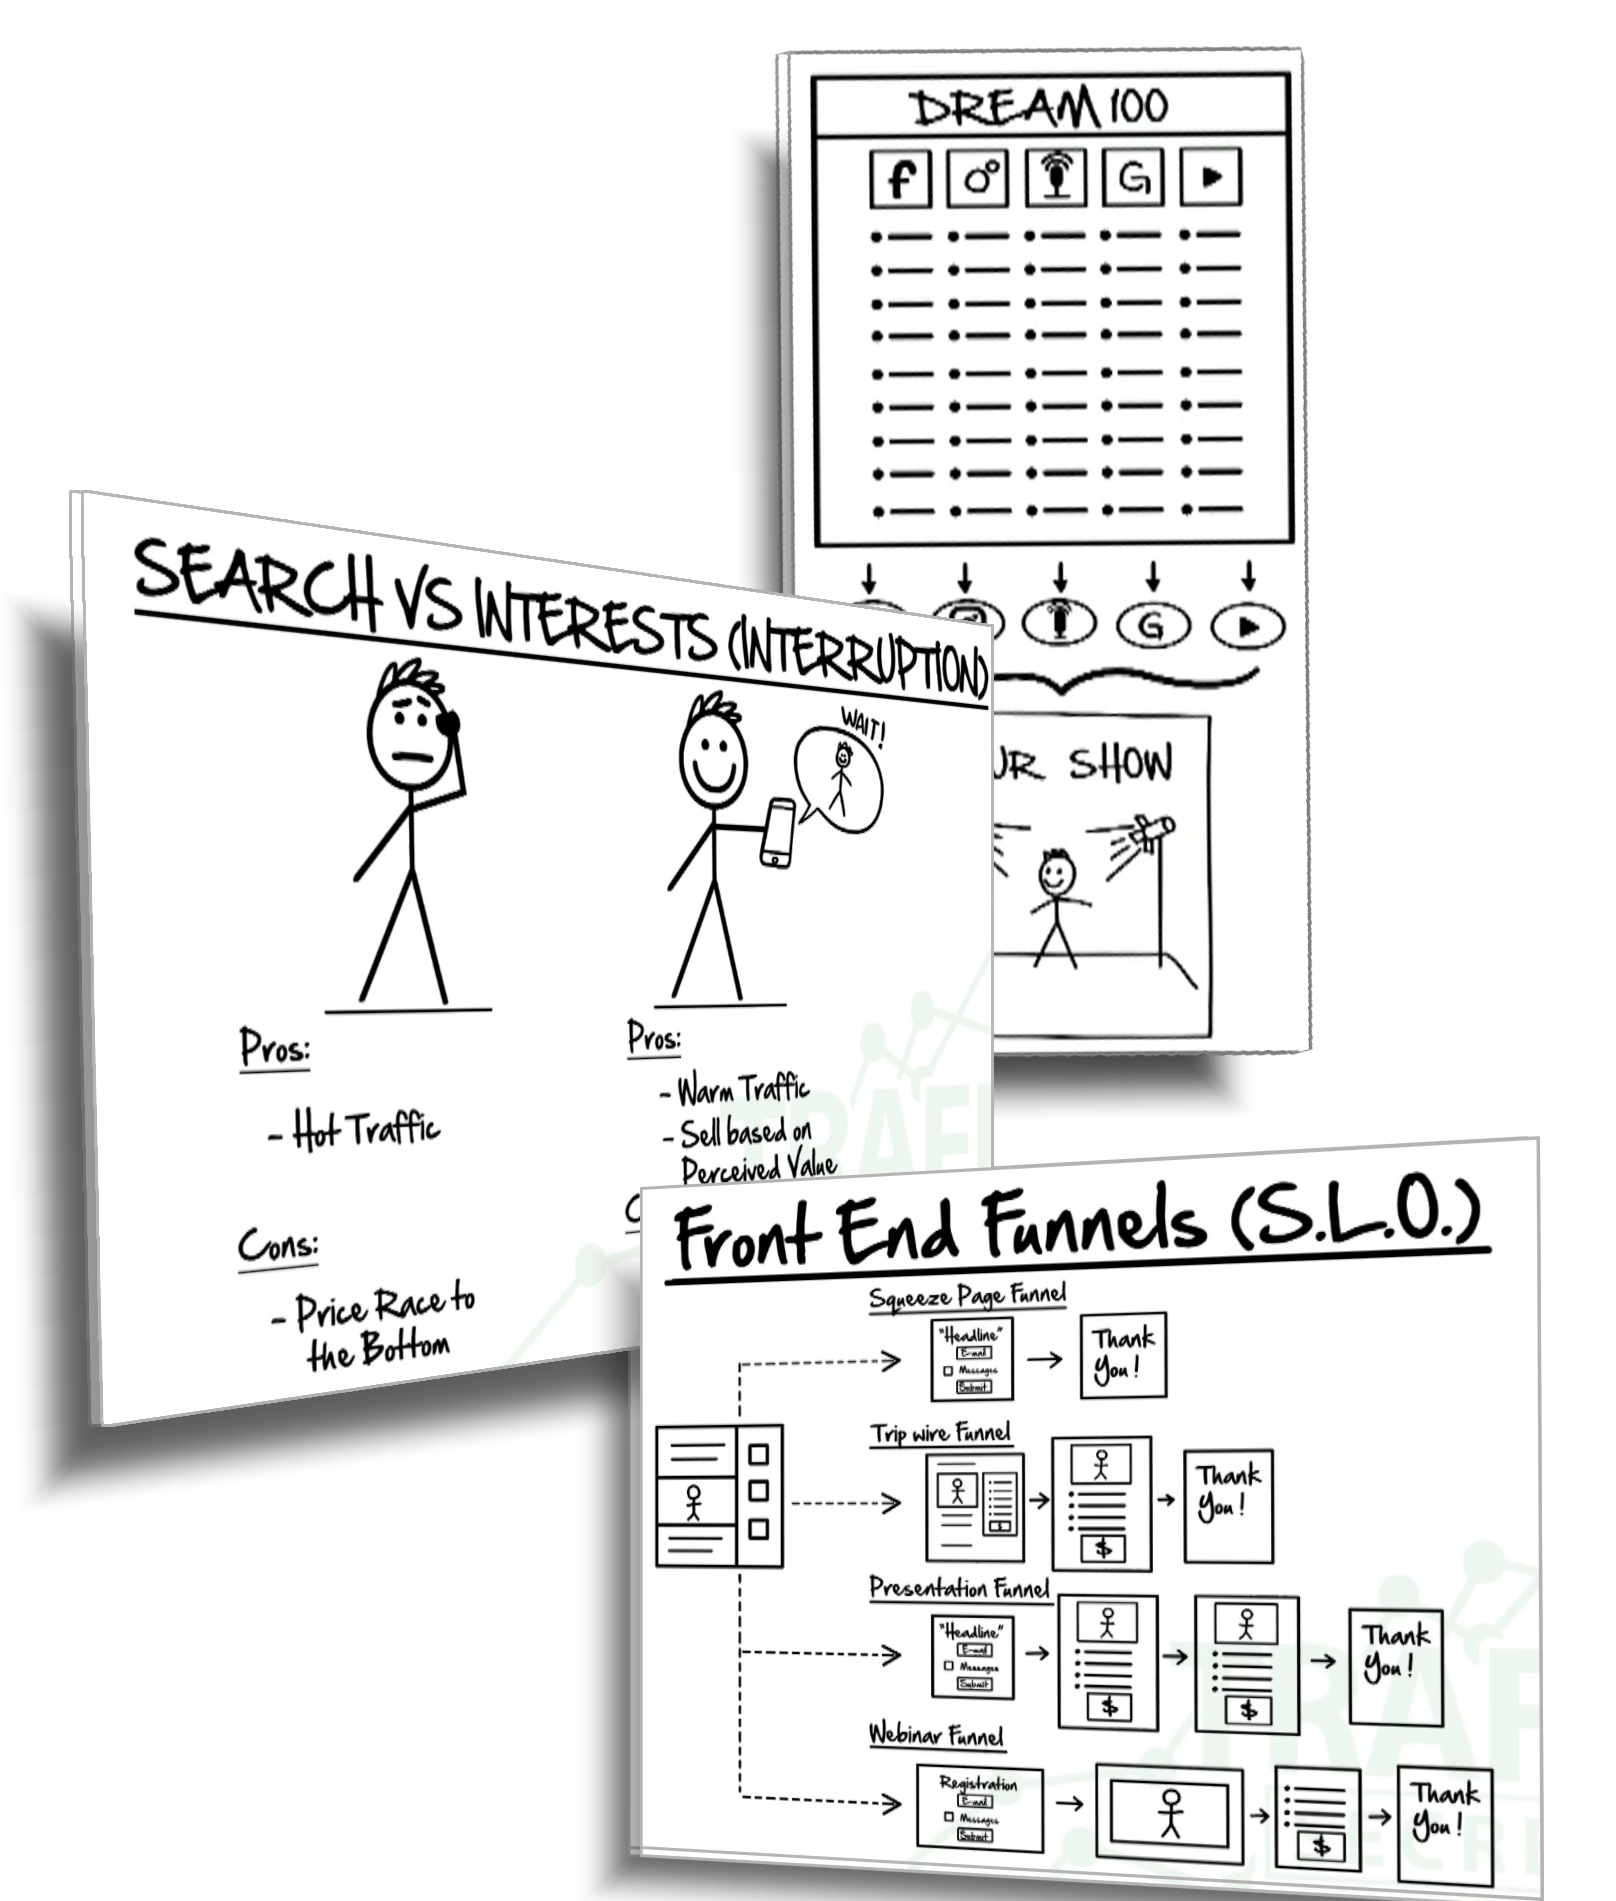 DREAM 100
f
G
G
UR SHOW
SEARCH VS INTERESTS (INTERRUPTION)
WAIT!
Pros:
- Hot Traffic
Cons:
- Price Race to
the Bottom
Pros:
- Warm Traffic
- Sell based on
Perceived Value
C
TRAFF
Front End Funnels (S.L.O.)
Squeeze Page Funnel
"Headline"
E-mail
Messages
Submit
Thank
You!
Trip wire Funnel
$
Thank
You!
Presentation Funnel
"Headline"
E-mail
Messages
Submit
$
$
Thank
You!
Webinar Funnel
Registration
E-mail
Messages
Submit
$
Thank
You!
TRAF
ECRE